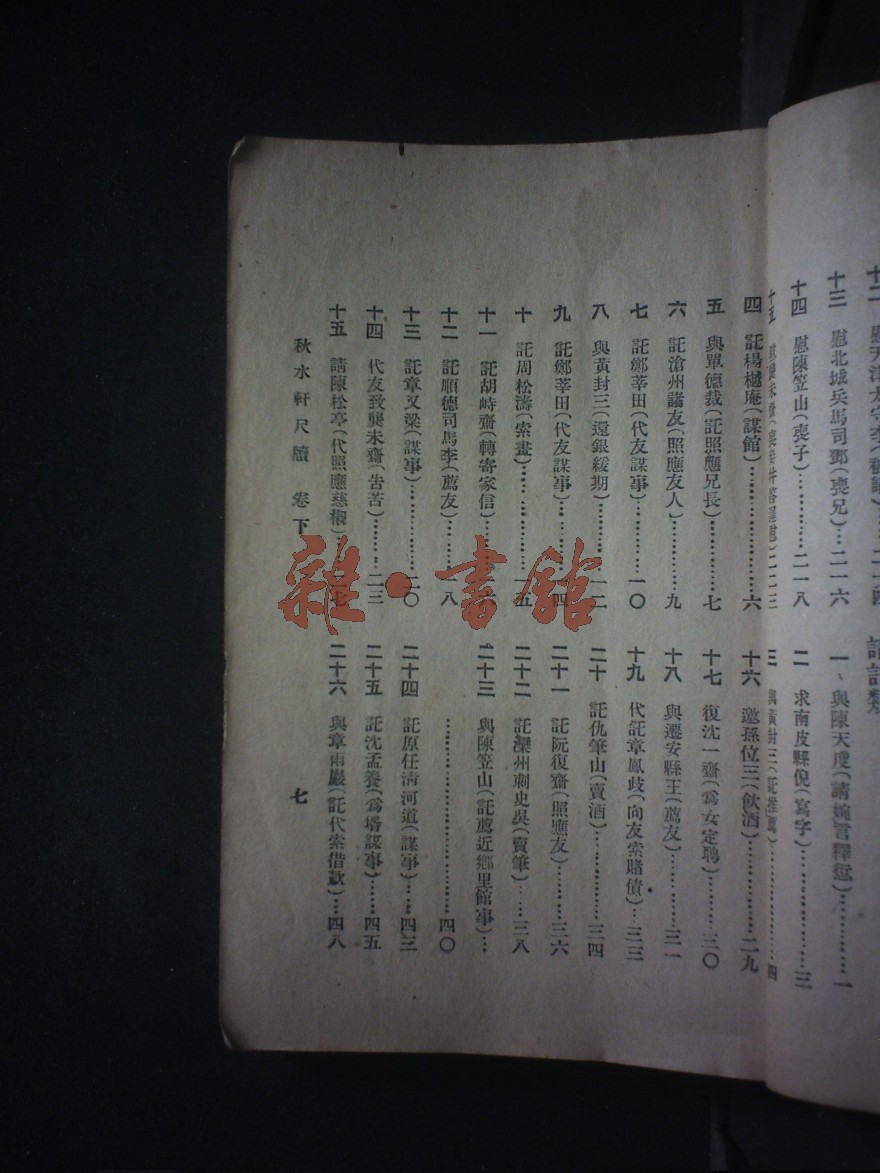 十二 慰天津太守李
十三 慰北城兵馬司鄧(喪兄)…二一六
十四 慰陳笠山(喪子)……二一八
請託類
一、與陳天度(請婉言釋愆)…………一
二 求南皮縣倪(寫字)…………三
三 與黃封三(託推薦)…………四
四 託楊樾庵(謀館)…………六
五 與單德裁(託照應兄長)…………七
六 託滄州諸友(照應友人)…………九
七 託鄭莘田(代友謀事)…………一〇
八 與黃封三(還銀緩期)…………一二
九 託鄭莘田(代友謀事)…………一四
十 託周松濤(索畫)…………一五
十一 託胡峙齋(轉寄家信)…………一六
十二 託順德司馬李(薦友)…………一八
十三 託章又梁(謀事)…………二〇
十四 代友致龔未齋(告苦)…………二三
十五 請陳松亭(代照應慈櫬)…二七
十六 邀孫位三(飲酒)…………二九
十七 復沈一齋(爲女定聘)…………三〇
十八 與遷安縣王(薦友)…………三一
十九 代託章鳳歧(向友索賭債)…三三
二十 託仇筆山(賣酒)…………三四
二十一 託阮復齋(照應友)…………三六
二十二 託灤州刺史吳(賣筆)……三八
二十三 與陳笠山(託薦近鄉里館事)…
…………………………四〇
二十四 託原任淸河道(謀事)…四三
二十五 託沈孟養(爲壻謀事)……四五
二十六 與章雨巖(託代索借款)…四八
秋水軒尺牘 卷下
七
雜·書館